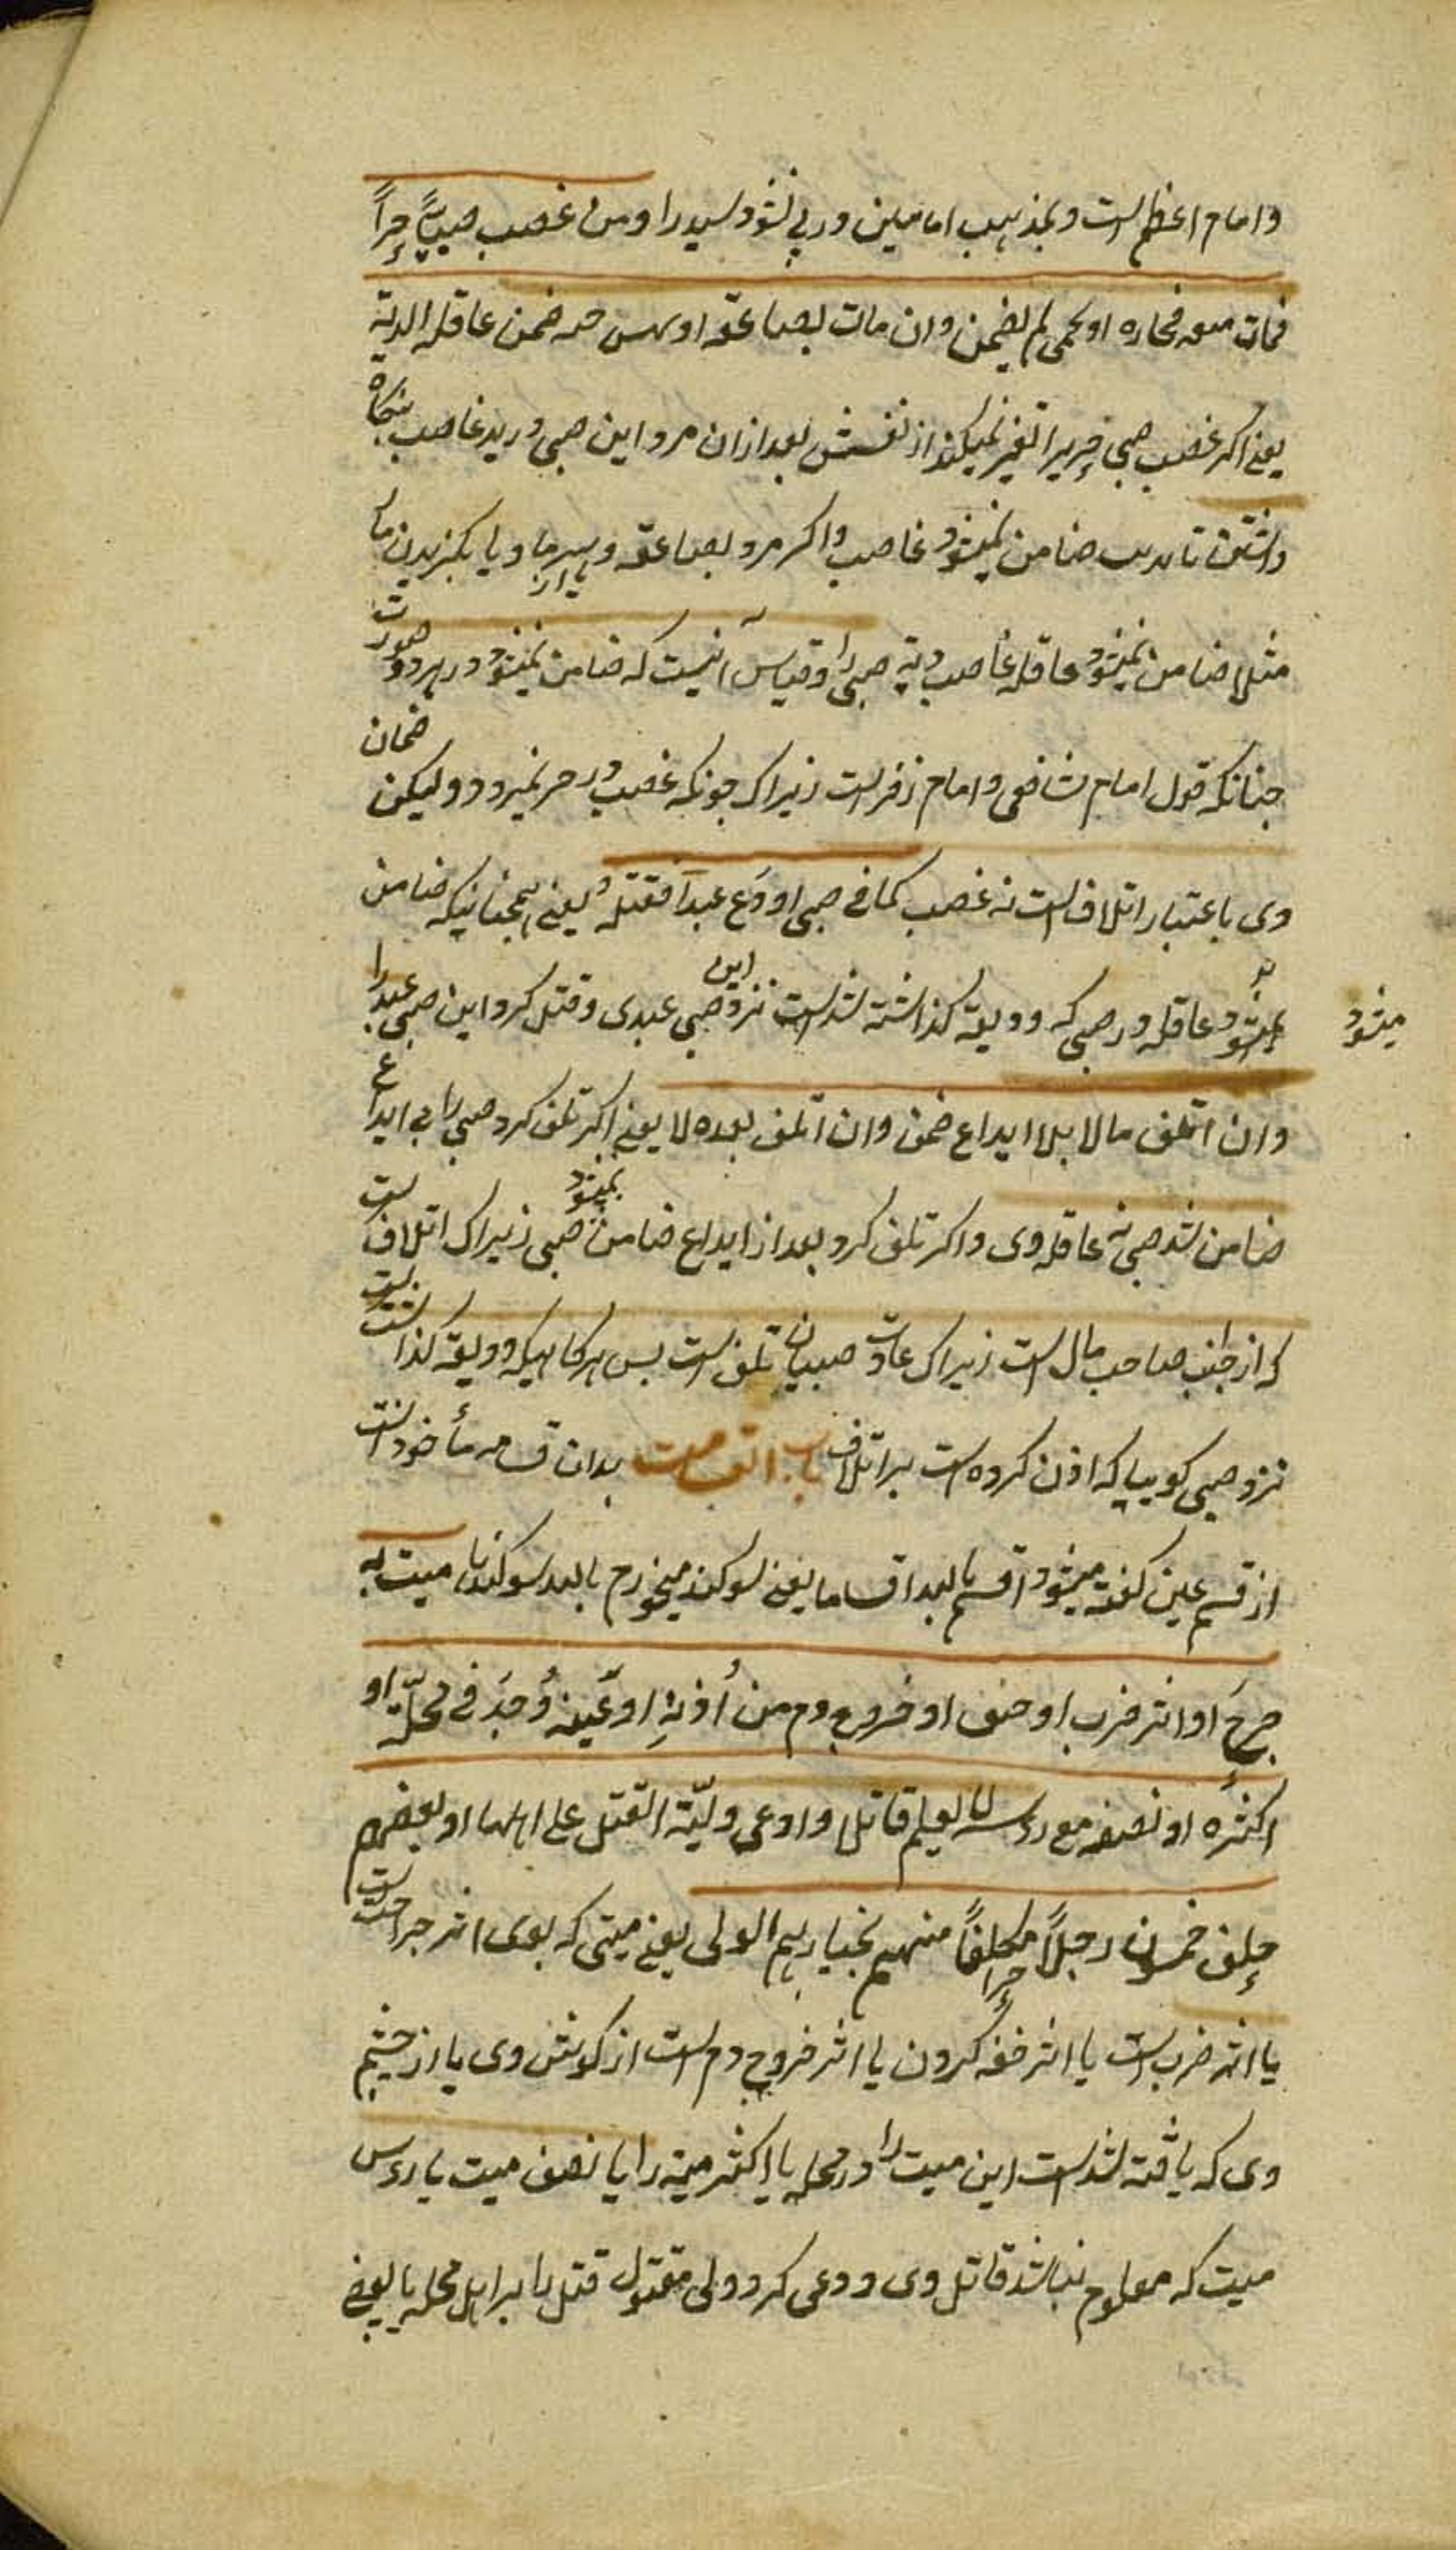 و امام اعظم است و بمذهب امامین در پی نشود سید را ومن غصب صبیاً حراً
فمات معه فجاءه او بحمی لم یضمن وان مات بصاعقه او نهس حیه ضمن عاقلة الدیة
یعنی اکر غصب صبی حریرا تغیر نمیکند از نفسش بعد ازان مرد این صبی در ید غاصب
داشتن تا ضامن نمیشود غاصب و اکر مرد بصاعقه و سرما و یا بکزیدن مار
مثلا ضامن نمیشود عاقله غاصب دیة صبی را وقیاس آنیست که ضامن نمیشود در هر دو صورت
چنانکه قول امام شافعی و امام زفر است زیراک چونکه غصب در حر نمیرود ولیکن ضمان
وی باعتبار اتلاف است نه غصب کما فی صبی اودع عبداً فقتله یعنی همچنانیکه ضامن
میشود عاقله در صبی که ودیعه کذاشته شد است نزد این صبی عبدی و قتل کرد این صبی عبد را
میشود
وان اتلف مالا بلا ایداع ضمن وان اتلف بعده لا یعنی اکر تلف کرد صبی را بی ایداع
ضامن شد صبی نه عاقله وی و اکر تلف کرد بعد از ایداع ضامن نمیشود صبی زیراک اتلاف است
که از جانب صاحب مال است زیراک عادت صبیان تلف است پس هرکاهیکه ودیعه کذاشت
نزد صبی کوییا که اذن کرده است بر اتلاف باب القسامت بدان قسامه مأخوذ است
از قسم عین کفته میشود اقسم بالله اقساما یعنی سوکند میخورم بالله سوکندها میت به
جرح او اثر ضرب او خنق او خروج دم من اُذنِهِ او عَینه وُجِدَ فی محلّة او
اکثرُه او نصفه مع رءسه لا یعلم قاتله وادعی ولیّه القتل علی اهلها او بعضهم
حلف خمسون رجلاً حراً مکلفاً منهم یختارهم الولی یعنی میتی که بوی اثر جراحت است
یا اثر ضرب است یا اثر خفه کردن یا اثر خروج دم است از کوش وی یا از چشم
وی که یافته شد است این میت را در محله یا اکثر میت را یا نصف میت با رءس
میت که معلوم نباشد قاتل وی و دعی کرد ولی مقتول قتل را بر اهل محله یا بعضی